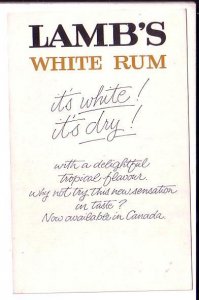 LAMB'S
WHITE RUM
it's white!
it's dry!
with a delightful
tropical flavour.
why not try this new sensation
in taste?
Now available in Canada.